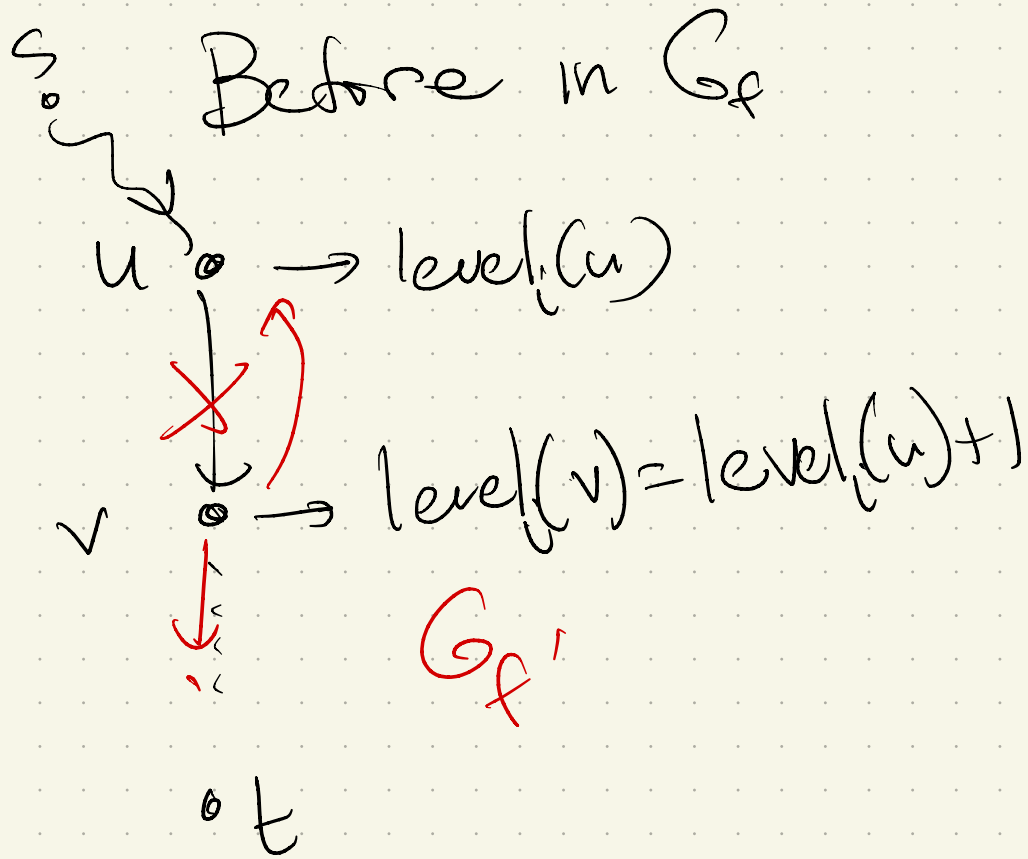 s
Before in G_f
u → level_i(u)
v → level_i(v) = level_i(u) + 1
G_f'
t